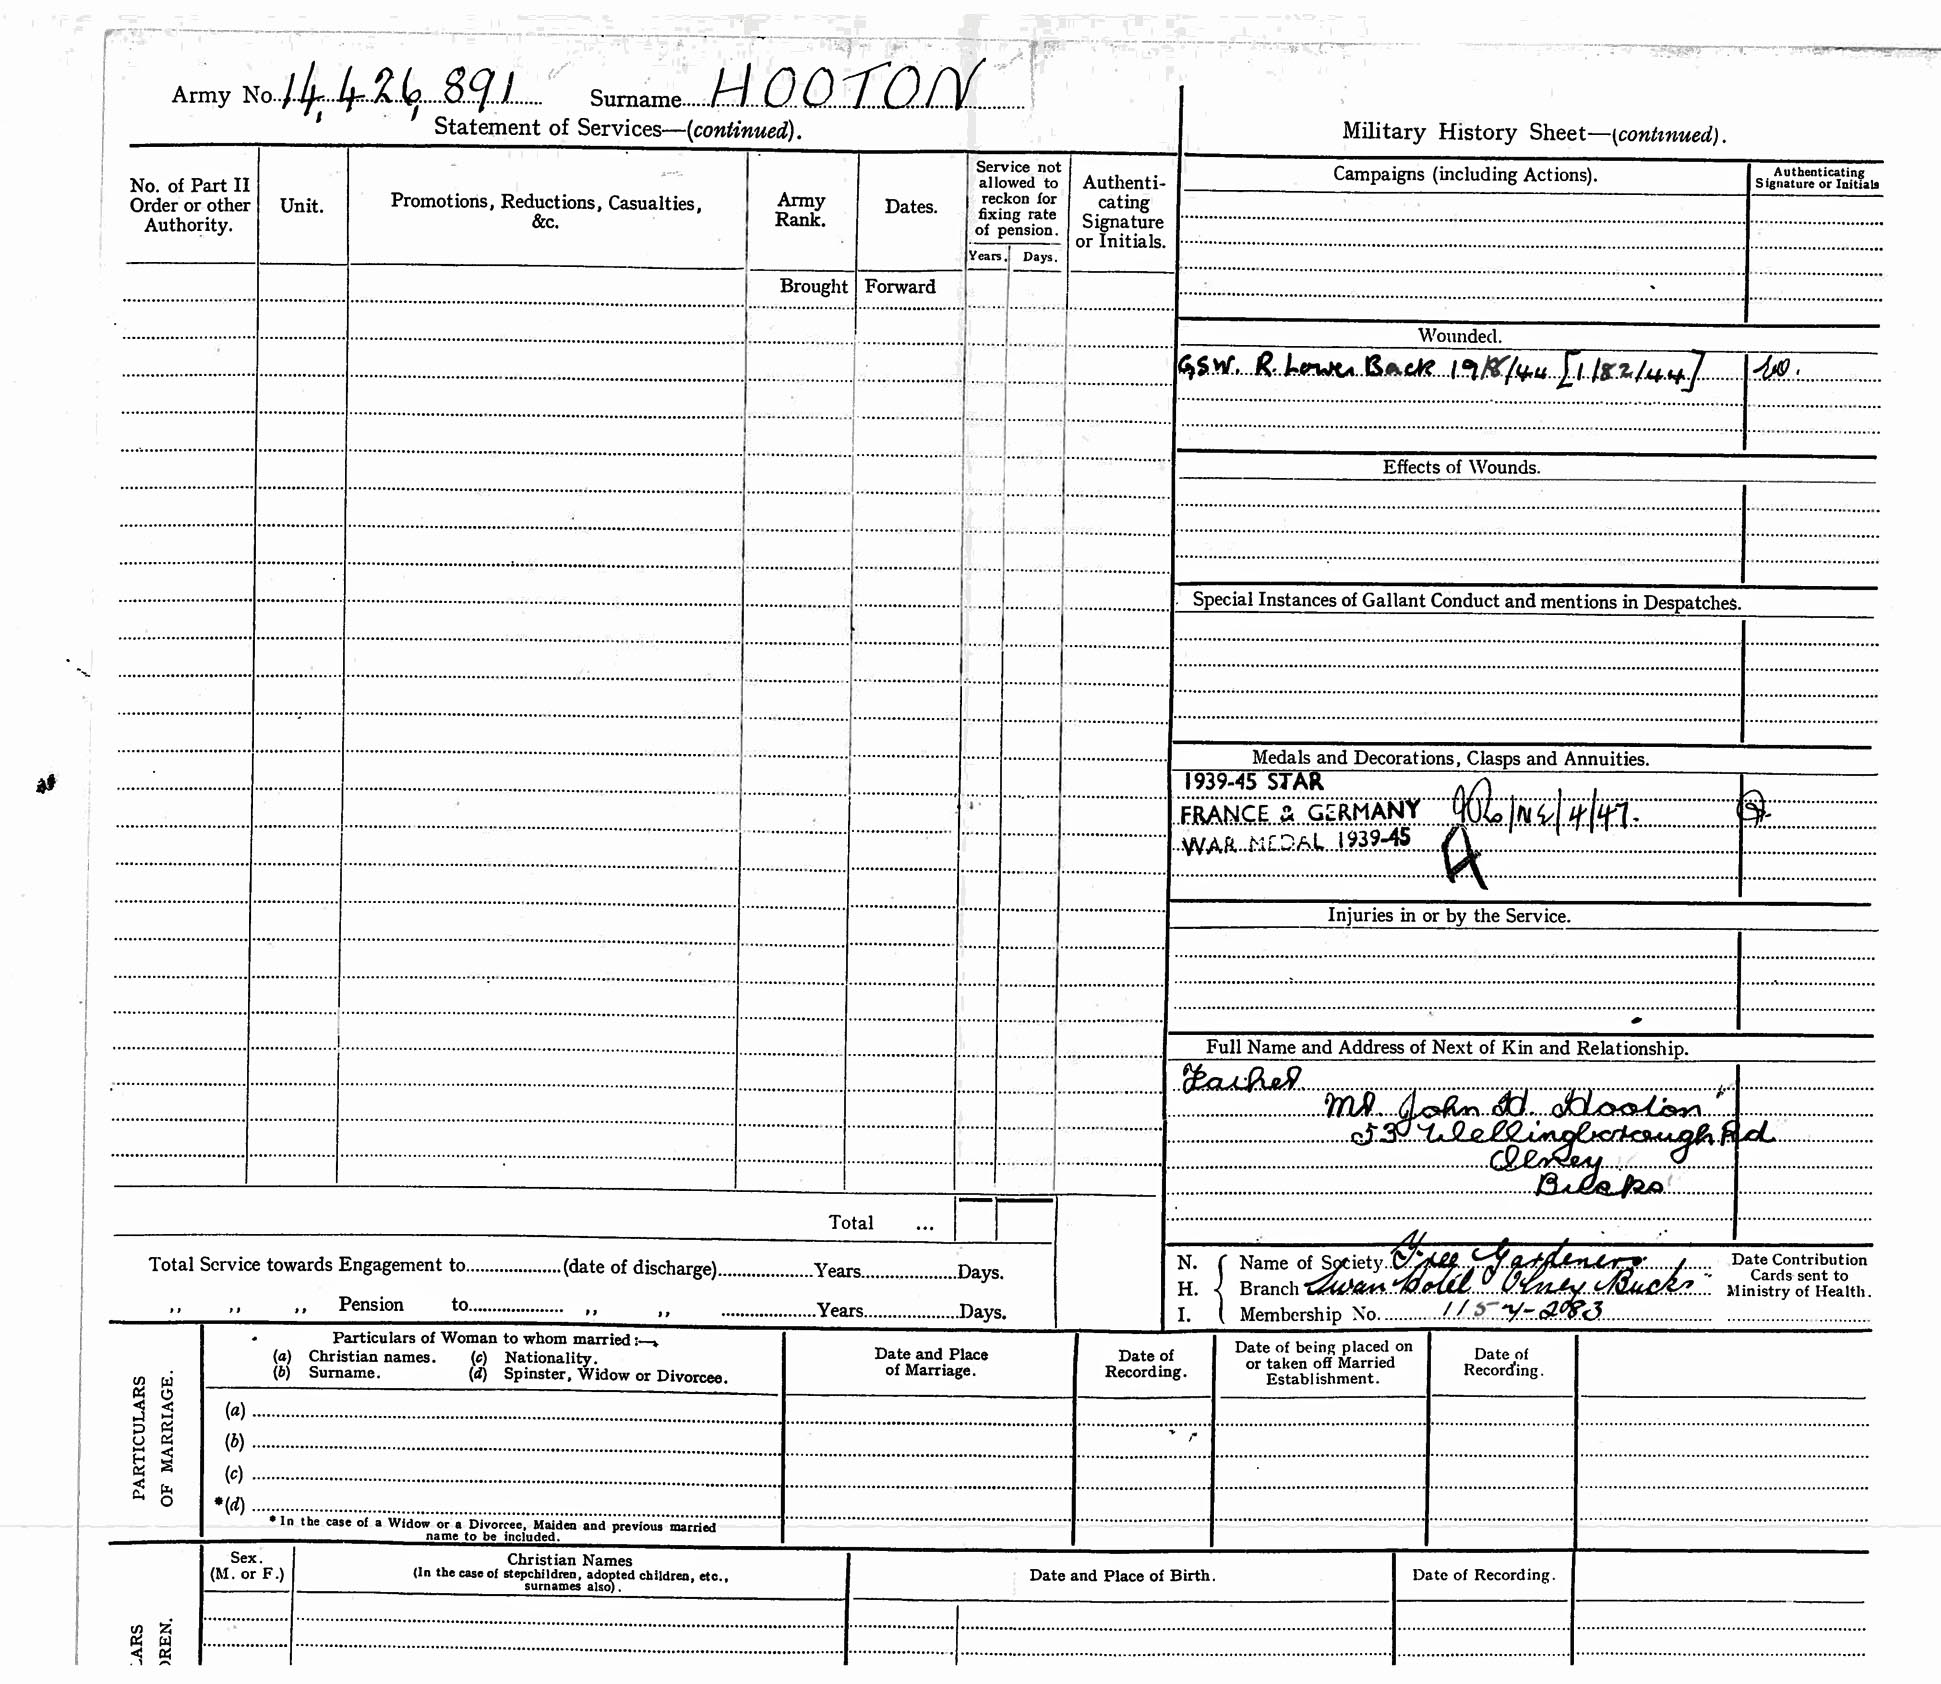 Army No. 14,426,891 Surname HOOTON
Statement of Services—(continued).
No. of Part II Order or other Authority.
Unit.
Promotions, Reductions, Casualties, &c.
Army Rank.
Dates.
Service not allowed to reckon for fixing rate of pension.
Years. Days.
Authenti-cating Signature or Initials.
Brought Forward
Total ...
Total Service towards Engagement to (date of discharge) Years Days.
,, ,, ,, Pension to ,, ,, Years Days.
Military History Sheet—(continued).
Campaigns (including Actions).
Authenticating Signature or Initials
Wounded.
GSW. R. Lower Back 19/8/44 [1/82/44]
Effects of Wounds.
Special Instances of Gallant Conduct and mentions in Despatches.
Medals and Decorations, Clasps and Annuities.
1939-45 STAR
FRANCE & GERMANY /4/47.
WAR MEDAL 1939-45
Injuries in or by the Service.
Full Name and Address of Next of Kin and Relationship.
Father
Mr. John H. Hooton
53 Wellingborough Rd
Olney
Bucks
N. Name of Society Free Gardeners
H. Branch Swan Hotel Olney Bucks
I. Membership No. 1154-2083
Date Contribution Cards sent to Ministry of Health.
PARTICULARS OF MARRIAGE.
Particulars of Woman to whom married:—
(a) Christian names. (c) Nationality.
(b) Surname. (d) Spinster, Widow or Divorcee.
Date and Place of Marriage.
Date of Recording.
Date of being placed on or taken off Married Establishment.
Date of Recording.
(a)
(b)
(c)
*(d)
* In the case of a Widow or a Divorcee, Maiden and previous married
name to be included.
LARS
REN.
Sex. (M. or F.)
Christian Names
(In the case of stepchildren, adopted children, etc.,
surnames also).
Date and Place of Birth.
Date of Recording.